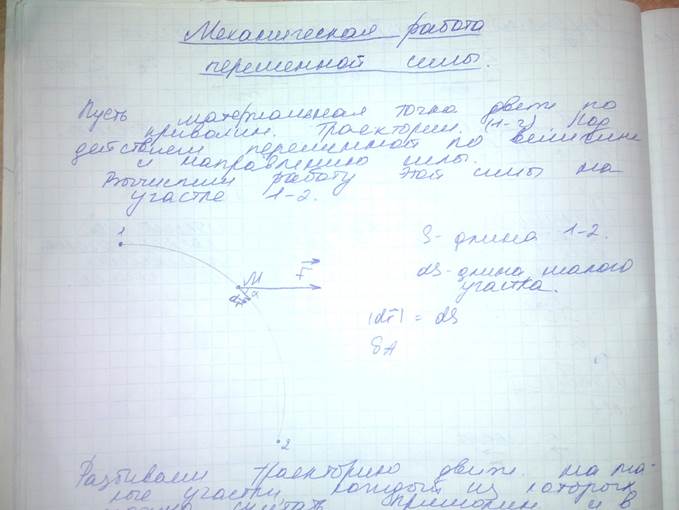 Механическая работа
переменной силы.
Пусть материальная точка движ по
криволин. траектории (1-2) под
действием переменной по величине
и направлению силы.
Вычислим работу этой силы на
участке 1-2.
1
S - длина 1-2.
M
F⃗
dS - длина малого
участка.
|dr⃗| = dS
δA
2
Разбиваем траекторию движ. на ма-
лые участки, каждый из которых
можно считать прямолин. и в